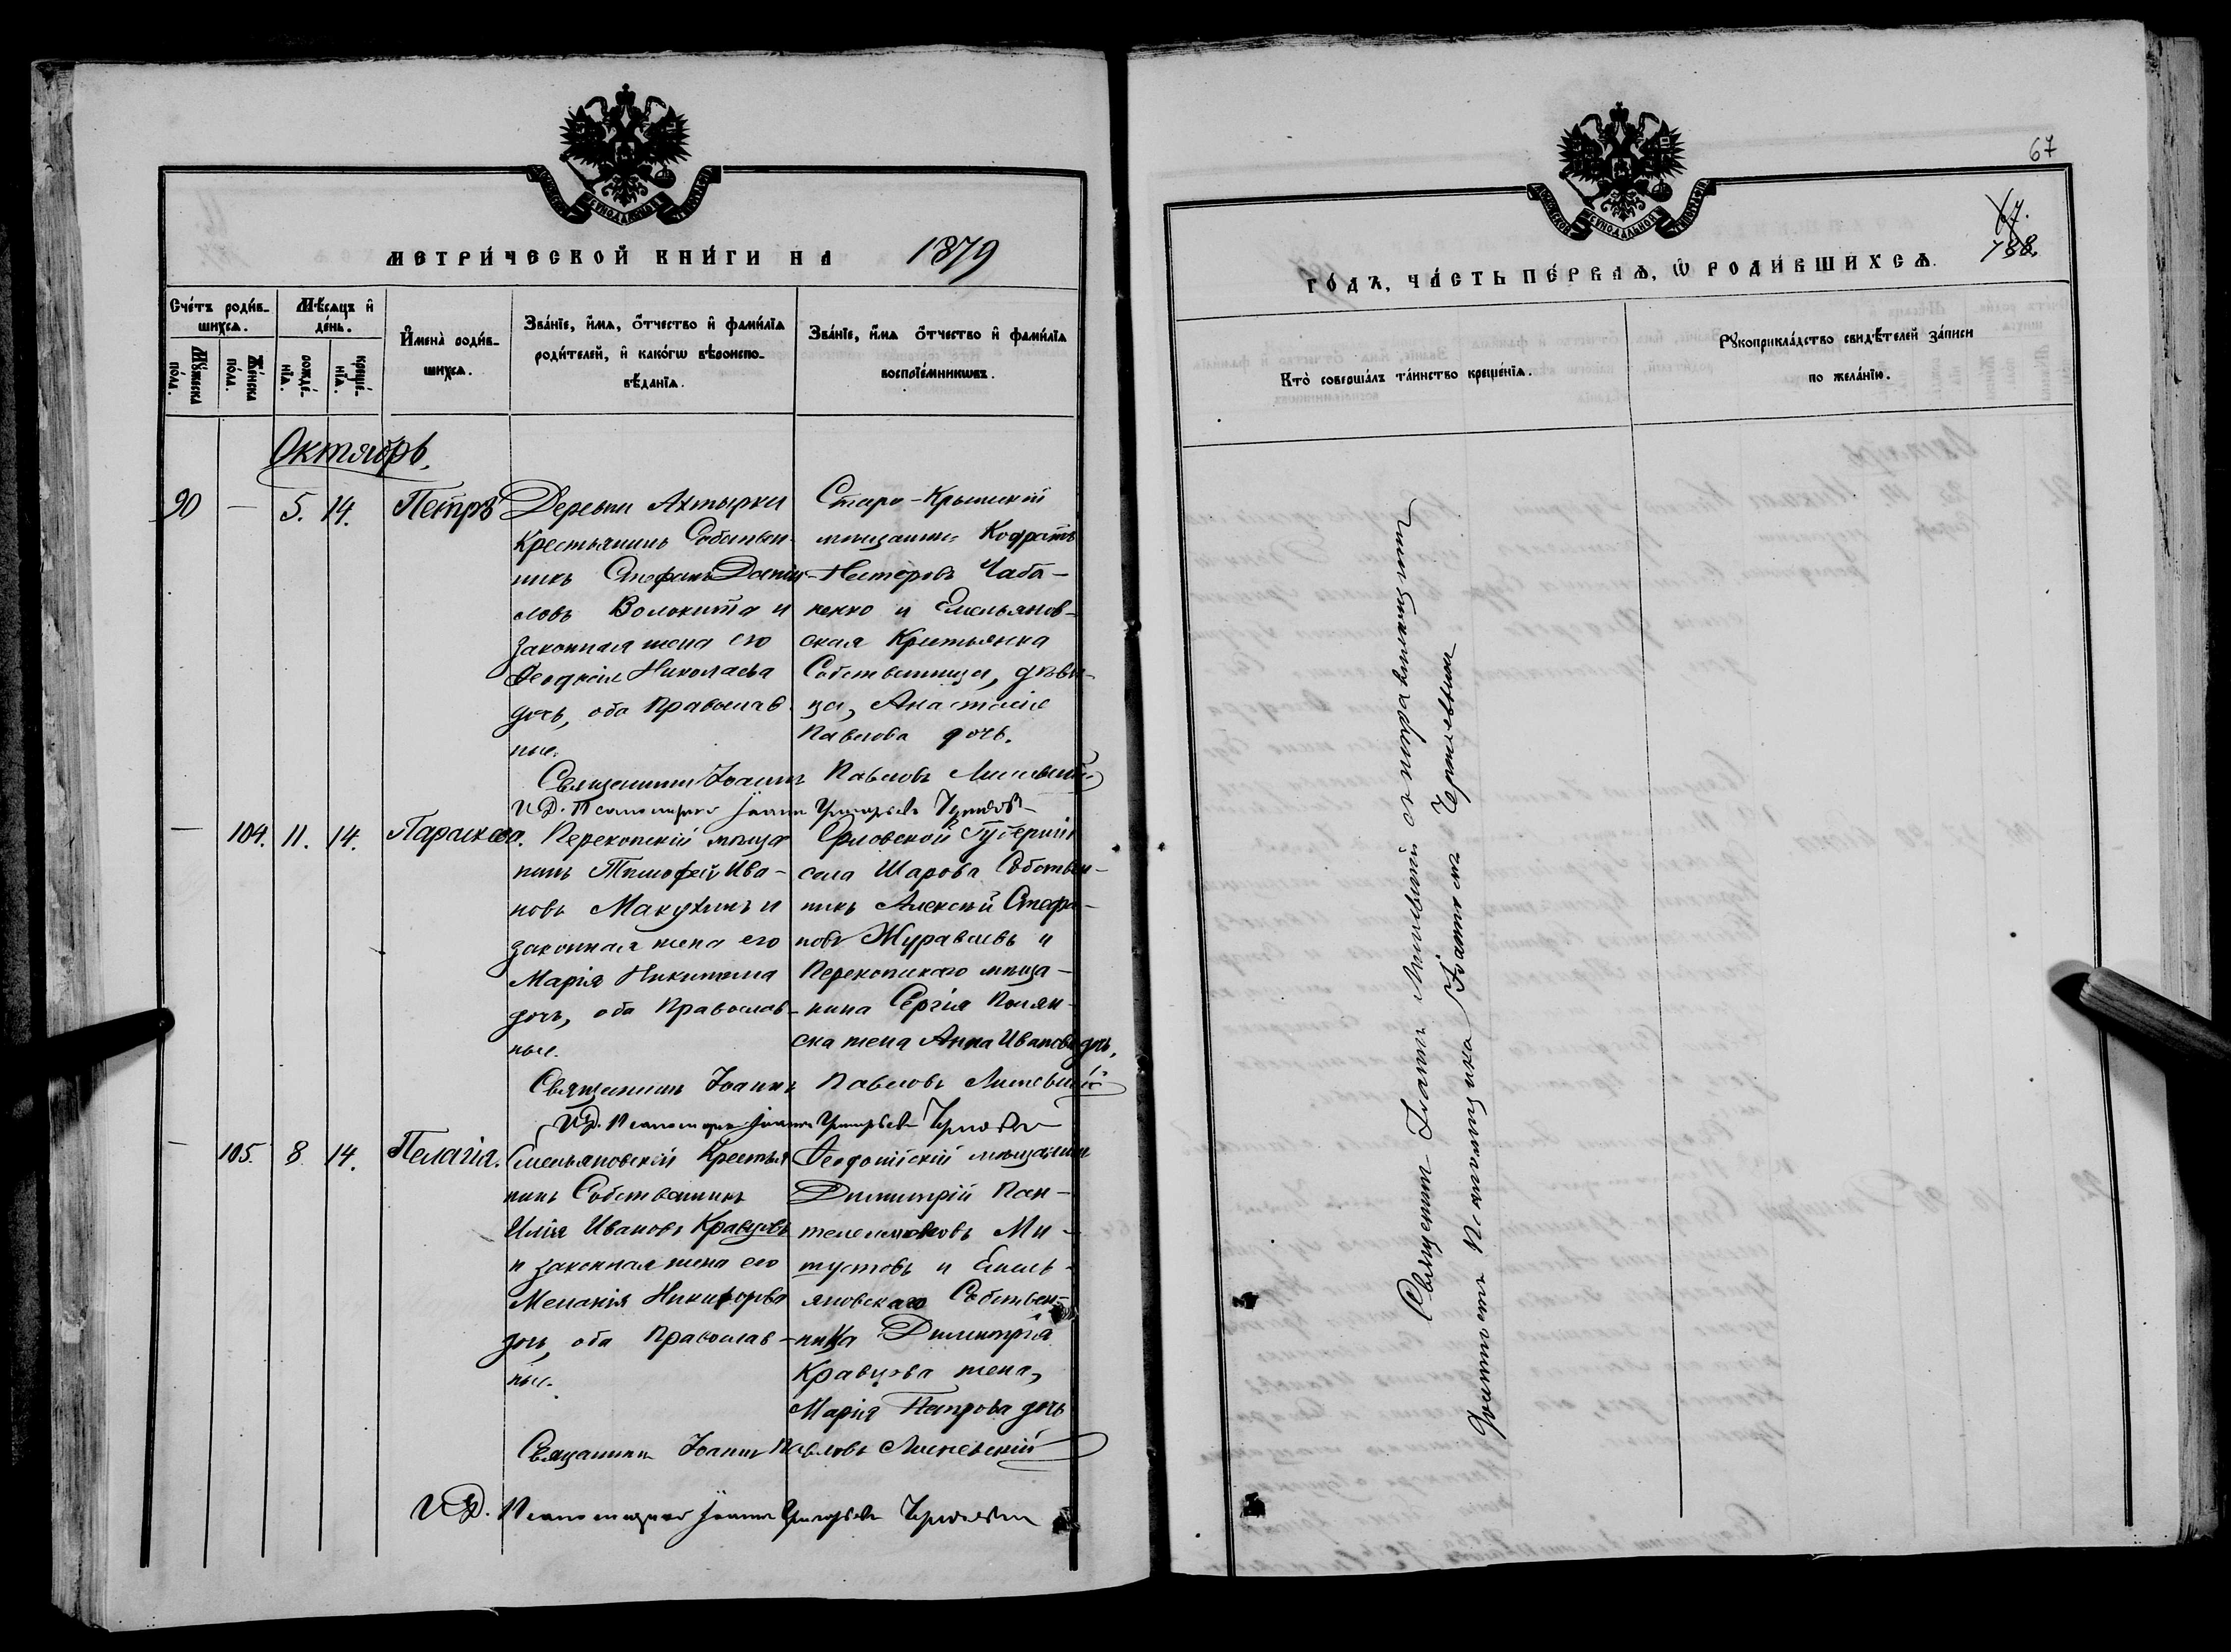 МЕТРИ́ЧЕСКОЙ КНИ́ГИ НА 1879
Сче́тъ роди́в-
шихсѧ.
Мꙋ́жеска
по́ла.
Же́нска
по́ла.
Мѣ́сѧцъ и҆
де́нь.
рожде́-
нїѧ.
креще́-
нїѧ.
И҆мена̀ роди́в-
шихсѧ.
Зва́нїе, и҆́мѧ, ѻ҆́тчество и҆ фами́лїѧ
роди́телей, и҆ како́гѡ вѣроиспо-
вѣ́данїѧ.
Зва́нїе, и҆́мѧ ѻ҆́тчество и҆ фами́лїѧ
воспрїе́мникѡвъ.
Октябрь.
90 — 5. 14. Петръ
Деревни Ахтырки
Крестьянинъ Собствен-
никъ Стефанъ Дани-
ловъ Волокита и
законная жена его
Феодосія Николаева
дочь, оба Православ-
ные.
Старо-Крымскій
мѣщанинъ Кодратъ
Несторовъ Чаба-
ненко и Емельянов-
ская Крестьянка
Собственница, дѣви-
ца, Анастасія
Павлова дочь.
Священникъ Іоаннъ Павловъ
И.Д. Псаломщика Іоаннъ Григорьевъ
— 104. 11. 14. Параскева.
Перекопскій мѣща
нинъ Тимофей Ива-
новъ Макухинъ и
законная жена его
Марія Никитина
дочь, оба Православ-
ные.
Орловской Губерніи
села Шарова Собствен-
никъ Алексѣй Стефа-
новъ Журавлевъ и
Перекопскаго мѣща-
нина Сергія Полян-
ска жена Анна Иванова дочь,
Священникъ Іоаннъ Павловъ
И.Д. Псаломщика Іоаннъ Григорьевъ
— 105. 8 14. Пелагія.
Емельяновскій Крестья
нинъ Собственникъ
Илія Ивановъ Кравцовъ
и законная жена его
Меланія Никифорова
дочь, оба Православ-
ные.
Феодосійскій мѣщанинъ
Димитрій Пан-
телеимоновъ Ми-
тустовъ и Емель-
яновскаго Собствен-
ника Димитрія
Кравцова жена,
Марія Петрова дочь
Священникъ Іоаннъ Павловъ
И.Д. Псаломщика Іоаннъ Григорьевъ
67
67.
788.
ГО́ДЪ, ЧА́СТЬ ПЕ́РВАѦ, Ѡ҆ РОДИ́ВШИХСѦ.
Кто̀ соверша́лъ та́инство креще́нїѧ.
Рꙋкоприкла́дство свидѣ́телей за́писи
по жела́нїю.
Священникъ Іоаннъ
Псаломщика Іоаннъ